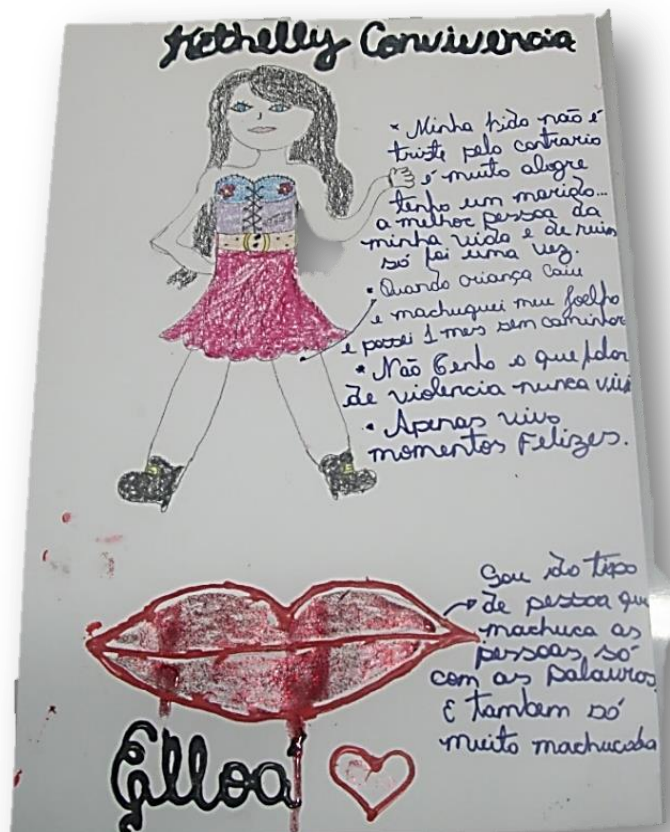 Kethelly Convivencia
• Minha vida não é
triste pelo contrario
é muito alegre
tenho um marido...
a melhor pessoa da
minha vida e de ruim
só foi uma vez.
• Quando criança caiu
e machuquei meu joelho
e passei 1 mes sem caminhar
• Não tenho o que falar
de violencia nunca vivi
• Apenas vivo
momentos Felizes.
Sou do tipo
de pessoa que
machuca as
pessoas só
com as palavras
E tambem só
muito machucada
Elloa